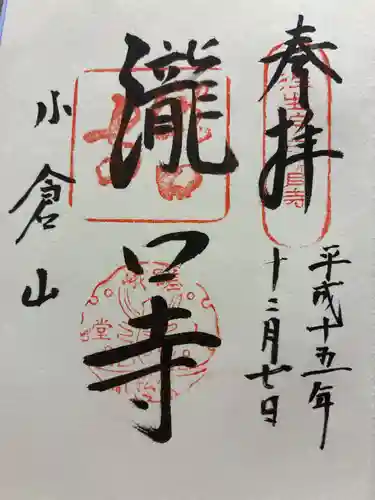 奉拝
平成十五年
十二月七日
瀧口寺
小倉山